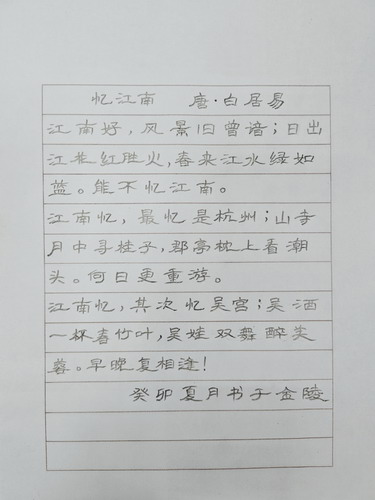 忆江南 唐·白居易
江南好，风景旧曾谙；日出
江花红胜火，春来江水绿如
蓝。能不忆江南。
江南忆，最忆是杭州；山寺
月中寻桂子，郡亭枕上看潮
头。何日更重游。
江南忆，其次忆吴宫；吴酒
一杯春竹叶，吴娃双舞醉芙
蓉。早晚复相逢！
癸卯夏月书于金陵